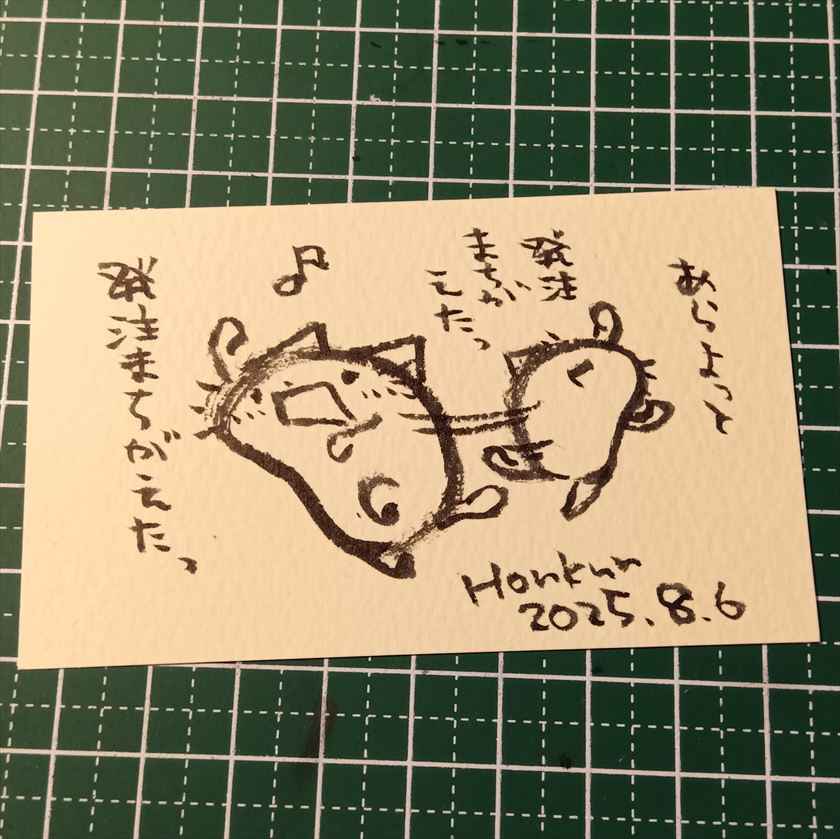 あらよっと
発注
まちが
えたっ
発注まちがえたっ
Honkun
2025.8.6